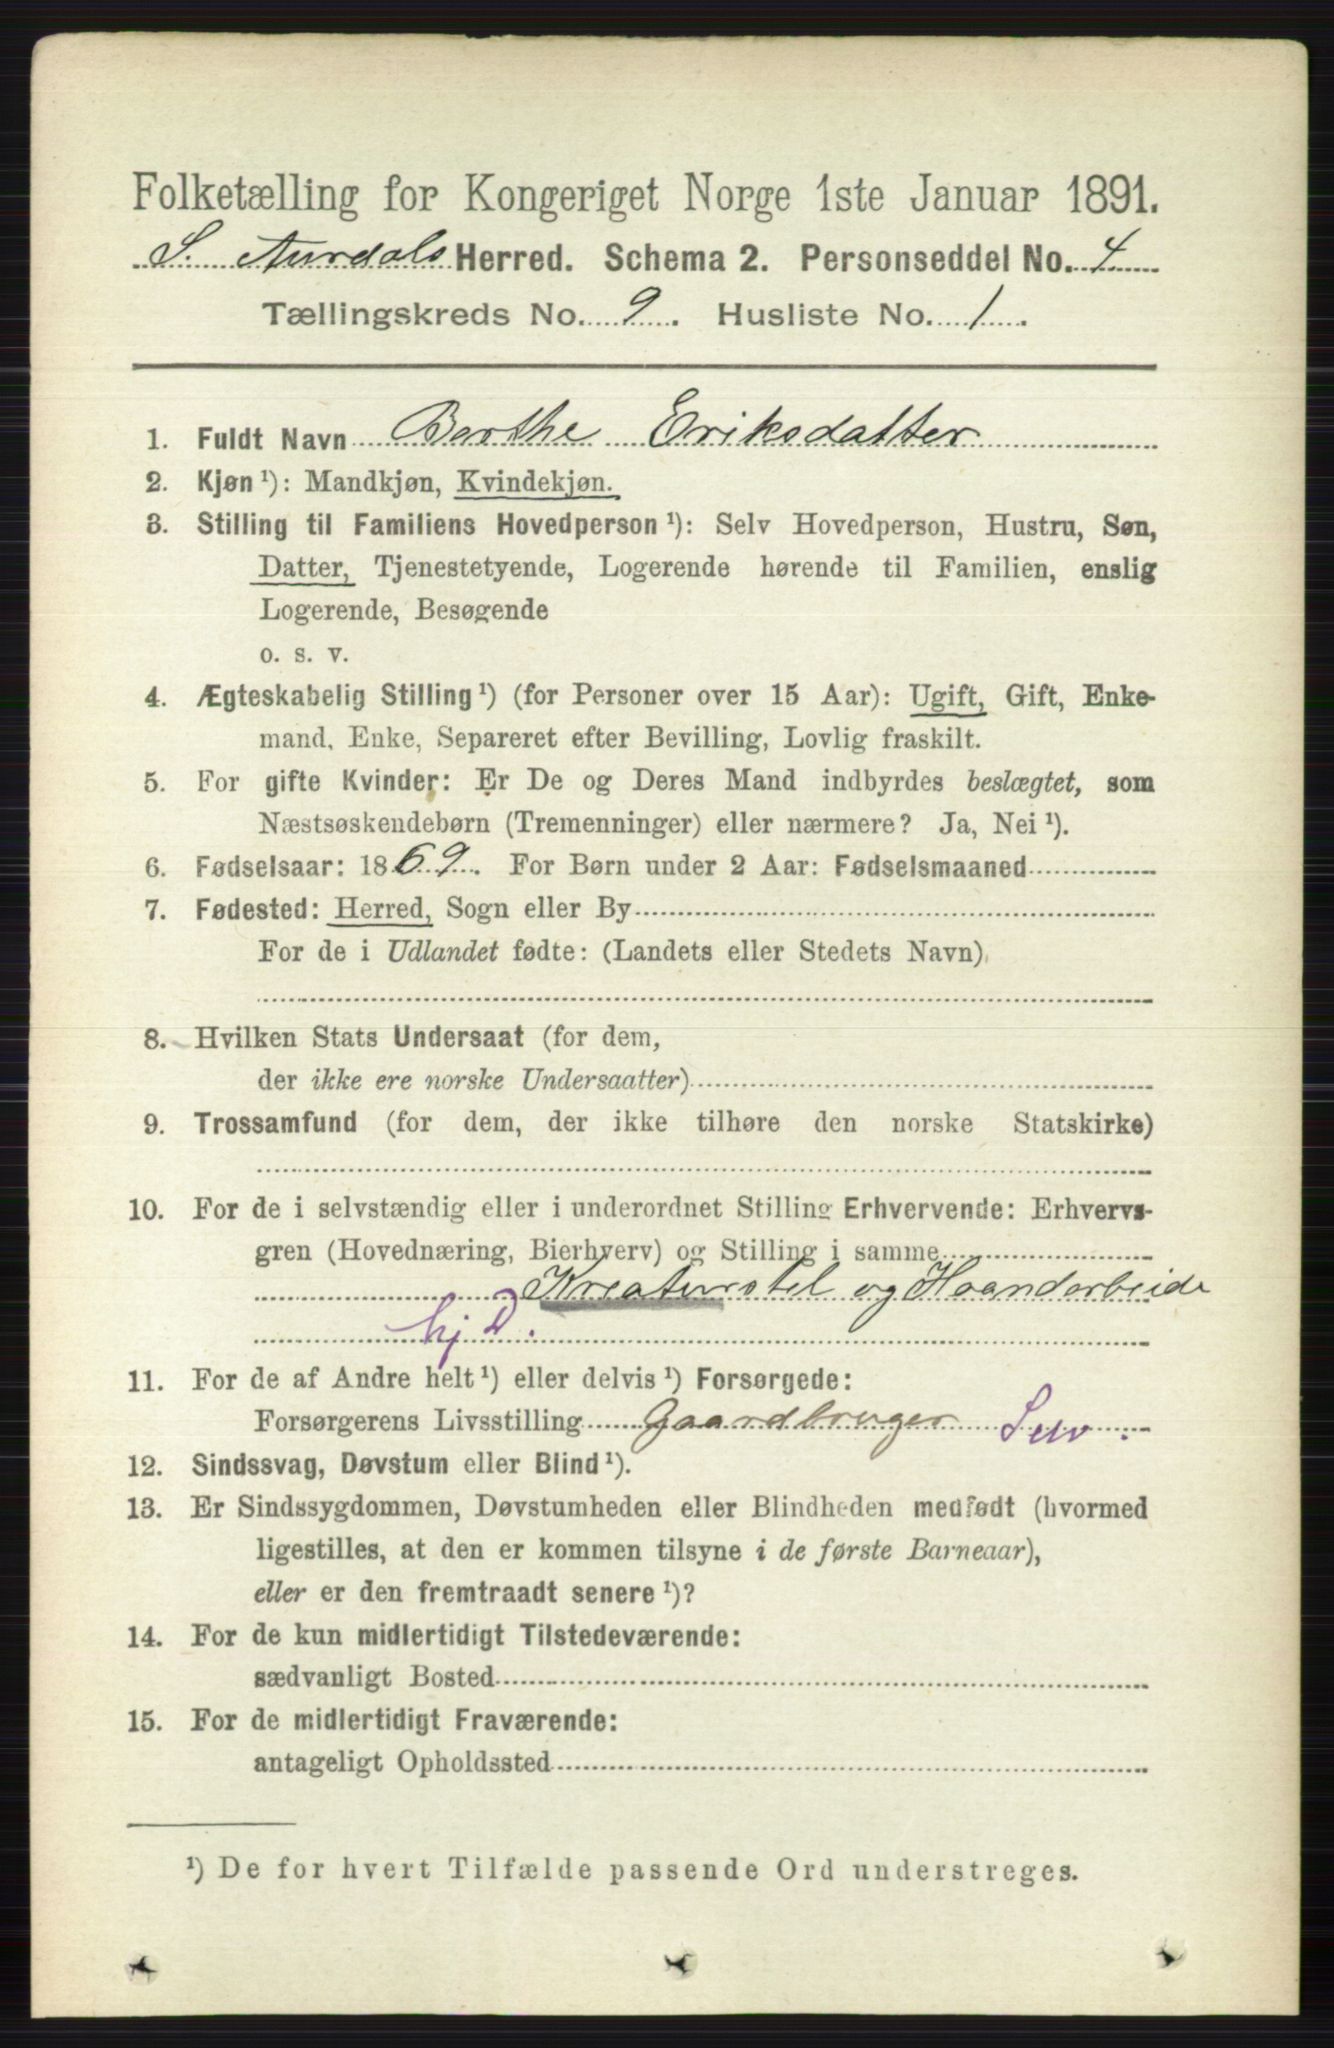 Folketælling for Kongeriget Norge 1ste Januar 1891.
S. Aurdals Herred. Schema 2. Personseddel No. 4
Tællingskreds No. 9. Husliste No. 1.
1. Fuldt Navn Berthe Eriksdatter
2. Kjøn ¹): Mandkjøn, Kvindekjøn.
3. Stilling til Familiens Hovedperson ¹): Selv Hovedperson, Hustru, Søn,
Datter, Tjenestetyende, Logerende hørende til Familien, enslig
Logerende, Besøgende
o. s. v.
4. Ægteskabelig Stilling ¹) (for Personer over 15 Aar): Ugift, Gift, Enke-
mand, Enke, Separeret efter Bevilling, Lovlig fraskilt.
5. For gifte Kvinder: Er De og Deres Mand indbyrdes beslægtet, som
Næstsøskendebørn (Tremenninger) eller nærmere? Ja, Nei ¹).
6. Fødselsaar: 1869. For Børn under 2 Aar: Fødselsmaaned
7. Fødested: Herred, Sogn eller By
For de i Udlandet fødte: (Landets eller Stedets Navn)
8. Hvilken Stats Undersaat (for dem,
der ikke ere norske Undersaatter)
9. Trossamfund (for dem, der ikke tilhøre den norske Statskirke)
10. For de i selvstændig eller i underordnet Stilling Erhvervende: Erhvervs-
gren (Hovednæring, Bierhverv) og Stilling i samme
Kreaturstel og Haandarbeide
hj D.
11. For de af Andre helt ¹) eller delvis ¹) Forsørgede:
Forsørgerens Livsstilling Gaardbruger Selv.
12. Sindssvag, Døvstum eller Blind ¹).
13. Er Sindssygdommen, Døvstumheden eller Blindheden medfødt (hvormed
ligestilles, at den er kommen tilsyne i de første Barneaar),
eller er den fremtraadt senere ¹)?
14. For de kun midlertidigt Tilstedeværende:
sædvanligt Bosted
15. For de midlertidigt Fraværende:
antageligt Opholdssted
¹) De for hvert Tilfælde passende Ord understreges.